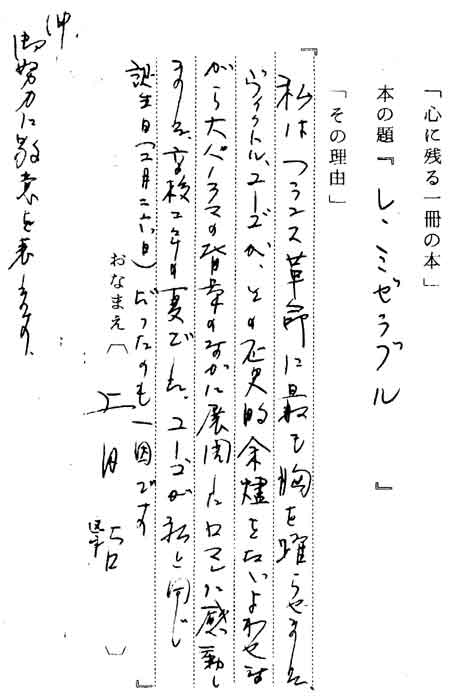 「心に残る一冊の本」
本の題『レ・ミゼラブル』
「その理由」
『私はフランス革命に最も胸を躍らせました。
ヴィクトル、ユーゴが、その歴史的余燼をたいよわせな
がら大パノラマの背景のなかに展開したロマンに感動し
ました。高校二年の夏でした。ユーゴが私と同じ
誕生日(二月二六日)だったのも一因です』
おなまえ〔 〕
御努力に敬意を表します。